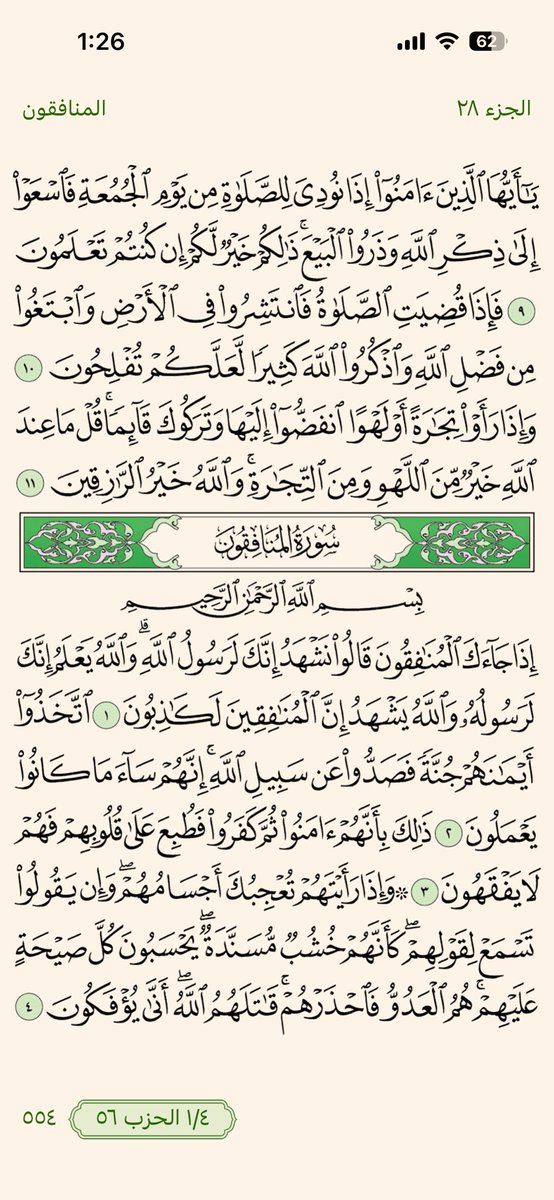 1:26
62
المنافقون
الجزء ٢٨
يَٰٓأَيُّهَا ٱلَّذِينَ ءَامَنُوٓا۟ إِذَا نُودِىَ لِلصَّلَوٰةِ مِن يَوْمِ ٱلْجُمُعَةِ فَٱسْعَوْا۟
إِلَىٰ ذِكْرِ ٱللَّهِ وَذَرُوا۟ ٱلْبَيْعَ ۚ ذَٰلِكُمْ خَيْرٌ لَّكُمْ إِن كُنتُمْ تَعْلَمُونَ
٩ فَإِذَا قُضِيَتِ ٱلصَّلَوٰةُ فَٱنتَشِرُوا۟ فِى ٱلْأَرْضِ وَٱبْتَغُوا۟
مِن فَضْلِ ٱللَّهِ وَٱذْكُرُوا۟ ٱللَّهَ كَثِيرًا لَّعَلَّكُمْ تُفْلِحُونَ ١٠
وَإِذَا رَأَوْا۟ تِجَٰرَةً أَوْ لَهْوًا ٱنفَضُّوٓا۟ إِلَيْهَا وَتَرَكُوكَ قَآئِمًا ۚ قُلْ مَا عِندَ
ٱللَّهِ خَيْرٌ مِّنَ ٱللَّهْوِ وَمِنَ ٱلتِّجَٰرَةِ ۚ وَٱللَّهُ خَيْرُ ٱلرَّٰزِقِينَ ١١
سُورَةُ المُنَافِقُونَ
بِسْمِ ٱللَّهِ ٱلرَّحْمَٰنِ ٱلرَّحِيمِ
إِذَا جَآءَكَ ٱلْمُنَٰفِقُونَ قَالُوا۟ نَشْهَدُ إِنَّكَ لَرَسُولُ ٱللَّهِ ۗ وَٱللَّهُ يَعْلَمُ إِنَّكَ
لَرَسُولُهُۥ وَٱللَّهُ يَشْهَدُ إِنَّ ٱلْمُنَٰفِقِينَ لَكَٰذِبُونَ ١ ٱتَّخَذُوٓا۟
أَيْمَٰنَهُمْ جُنَّةً فَصَدُّوا۟ عَن سَبِيلِ ٱللَّهِ ۚ إِنَّهُمْ سَآءَ مَا كَانُوا۟
يَعْمَلُونَ ٢ ذَٰلِكَ بِأَنَّهُمْ ءَامَنُوا۟ ثُمَّ كَفَرُوا۟ فَطُبِعَ عَلَىٰ قُلُوبِهِمْ فَهُمْ
لَا يَفْقَهُونَ ٣ ۞ وَإِذَا رَأَيْتَهُمْ تُعْجِبُكَ أَجْسَامُهُمْ ۖ وَإِن يَقُولُوا۟
تَسْمَعْ لِقَوْلِهِمْ ۖ كَأَنَّهُمْ خُشُبٌ مُّسَنَّدَةٌ ۖ يَحْسَبُونَ كُلَّ صَيْحَةٍ
عَلَيْهِمْ ۚ هُمُ ٱلْعَدُوُّ فَٱحْذَرْهُمْ ۚ قَٰتَلَهُمُ ٱللَّهُ ۖ أَنَّىٰ يُؤْفَكُونَ ٤
١/٤ الحزب ٥٦
٥٥٤